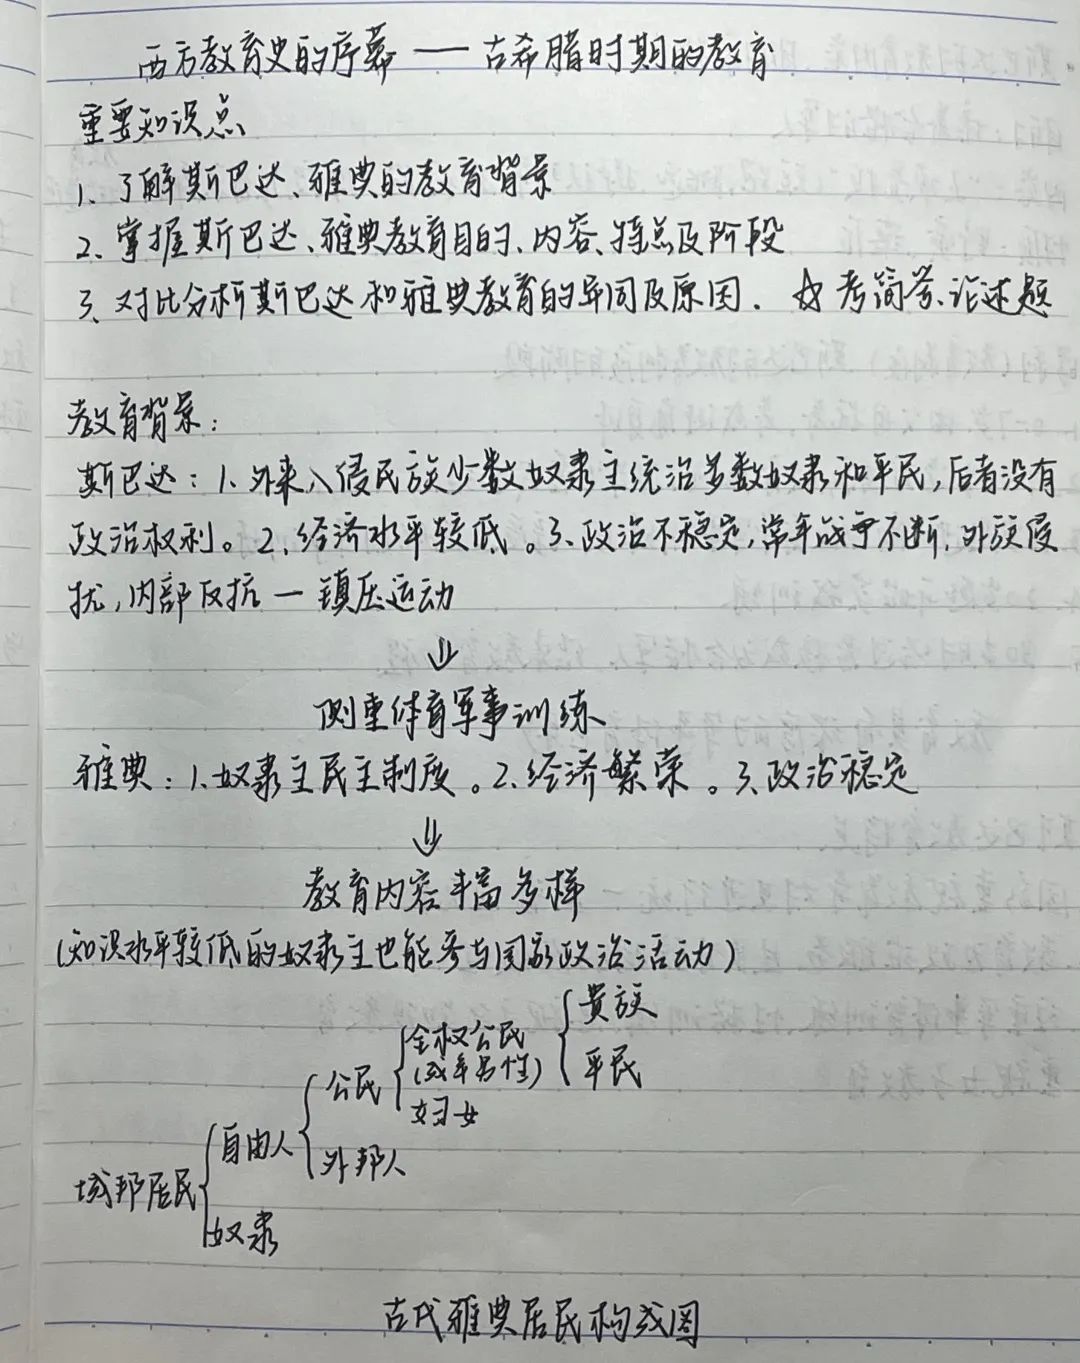 西方教育史的序幕——古希腊时期的教育
重要知识点
1、了解斯巴达、雅典的教育背景
2、掌握斯巴达、雅典教育目的、内容、特点及阶段
3、对比分析斯巴达和雅典教育的异同及原因. ☆考简答、论述题
教育背景：
斯巴达：1、外来入侵民族少数奴隶主统治多数奴隶和平民,后者没有
政治权利。2、经济水平较低。3、政治不稳定,常年战争不断,外族侵
扰,内部反抗一镇压运动
⇓
侧重体育军事训练
雅典：1、奴隶主民主制度。2、经济繁荣。3、政治稳定
⇓
教育内容丰富多样
(知识水平较低的奴隶主也能参与国家政治活动)
贵族
全权公民
(成年男性)
平民
公民
妇女
自由人
外邦人
城邦居民
奴隶
古代雅典居民构成图